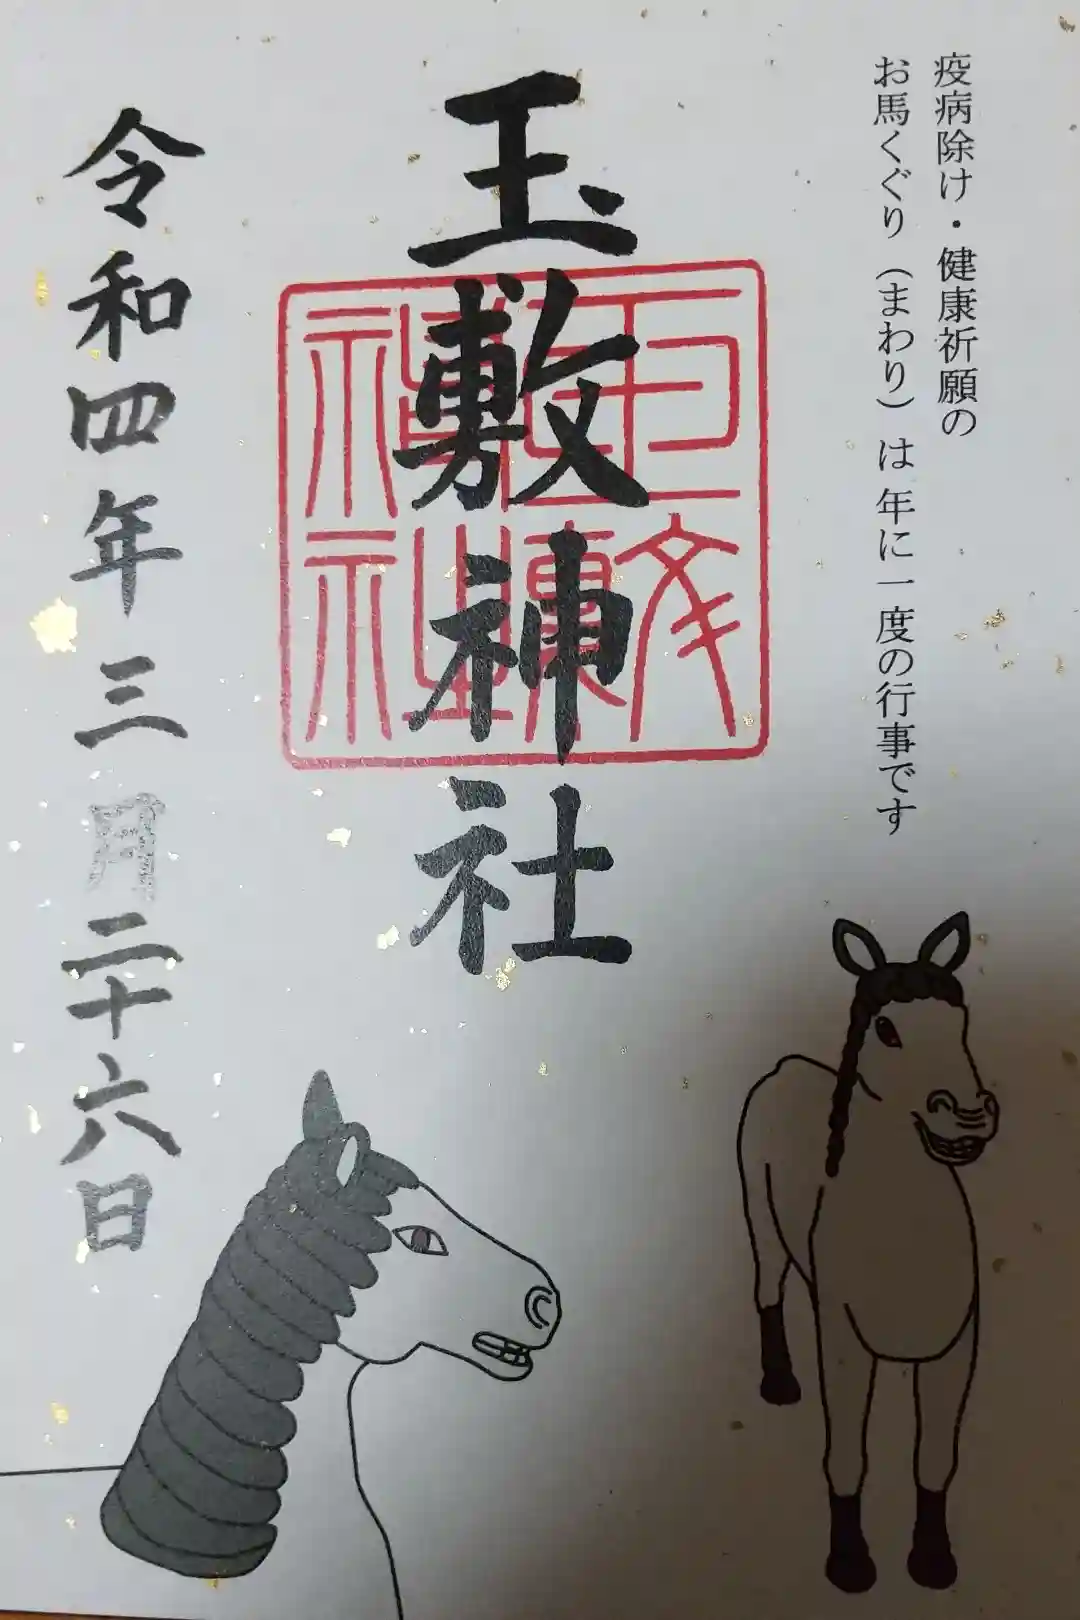 疫病除け・健康祈願の
お馬くぐり（まわり）は年に一度の行事です
玉敷神社
玉敷神社
令和四年三月二十六日